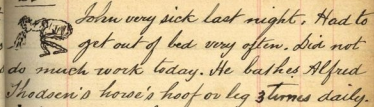 John very sick last night. Had to
get out of bed very often. Did not
do much work today. He bathes Alfred
Thodsen's horse's hoof or leg 3 times daily.